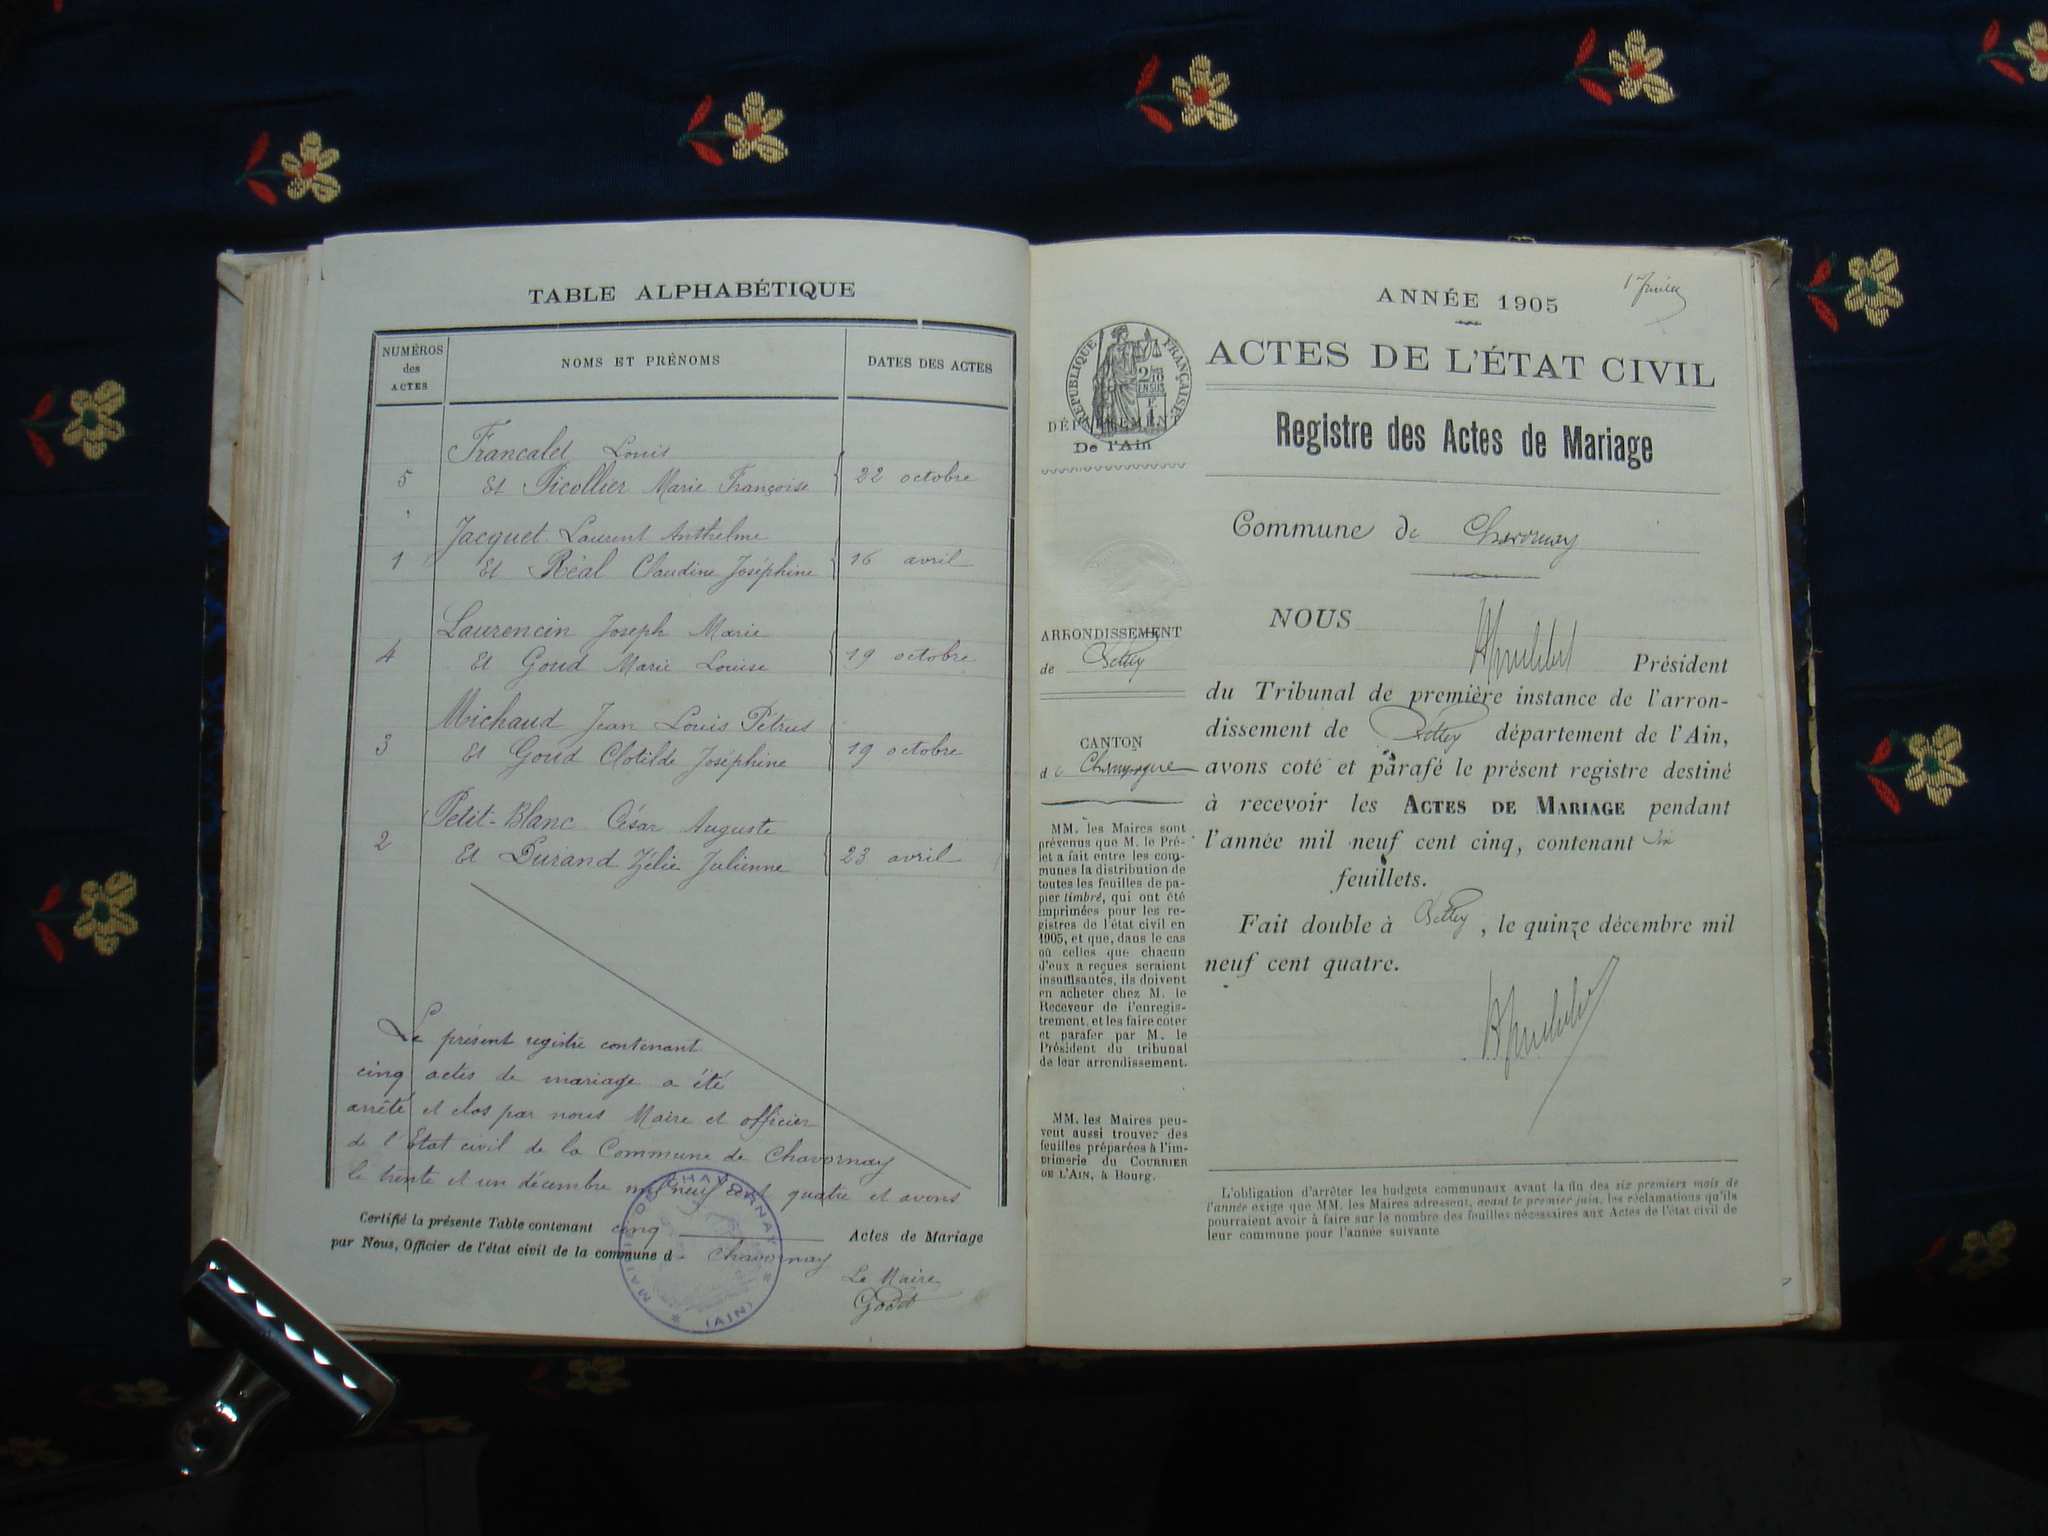 TABLE ALPHABÉTIQUE
NUMÉROS des ACTES
NOMS ET PRÉNOMS
DATES DES ACTES
Francalet Louis
5 Et Picollier Marie Françoise 22 octobre
Jacquet Laurent Anthelme
1 Et Réal Claudine Joséphine 16 avril
Laurencin Joseph Marie
4 Et Goud Marie Louise 19 octobre
Michaud Jean Louis Pétrus
3 Et Goud Clotilde Joséphine 19 octobre
Petit-Blanc César Auguste
2 Et Durand Zélie Julienne 23 avril
Le présent registre contenant
cinq actes de mariage a été
arrêté et clos par nous Maire et officier
de l'Etat civil de la Commune de Chavornay
le trente et un décembre mil neuf cent quatre et avons
Certifié la présente Table contenant cinq Actes de Mariage
par Nous, Officier de l'état civil de la commune de Chavornay
Le Maire
MAIRIE DE CHAVORNAY
(AIN)
ANNÉE 1905
ACTES DE L'ÉTAT CIVIL
RÉPUBLIQUE FRANÇAISE
DÉPARTEMENT
De l'Ain
Registre des Actes de Mariage
Commune de Chavornay
NOUS
ARRONDISSEMENT
de Belley
CANTON
de Champagne
Président
du Tribunal de première instance de l'arron-
dissement de Belley département de l'Ain,
avons coté et parafé le présent registre destiné
à recevoir les ACTES DE MARIAGE pendant
l'année mil neuf cent cinq, contenant
feuillets.
Fait double à Belley, le quinze décembre mil
neuf cent quatre.
MM. les Maires sont
prévenus que M. le Pré-
fet a fait entre les com-
munes la distribution de
toutes les feuilles de pa-
pier timbré, qui ont été
imprimées pour les re-
gistres de l'état civil en
1905, et que, dans le cas
où celles que chacun
d'eux a reçues seraient
insuffisantes, ils doivent
en acheter chez M. le
Receveur de l'enregis-
trement, et les faire coter
et parafer par M. le
Président du tribunal
de leur arrondissement.
MM. les Maires peu-
vent aussi trouver des
feuilles préparées à l'im-
primerie du COURRIER
DE L'AIN, à Bourg.
L'obligation d'arrêter les budgets communaux avant la fin des six premiers mois de
l'année exige que MM. les Maires adressent, avant le premier juin, les réclamations qu'ils
pourraient avoir à faire sur le nombre des feuilles nécessaires aux Actes de l'état civil de
leur commune pour l'année suivante